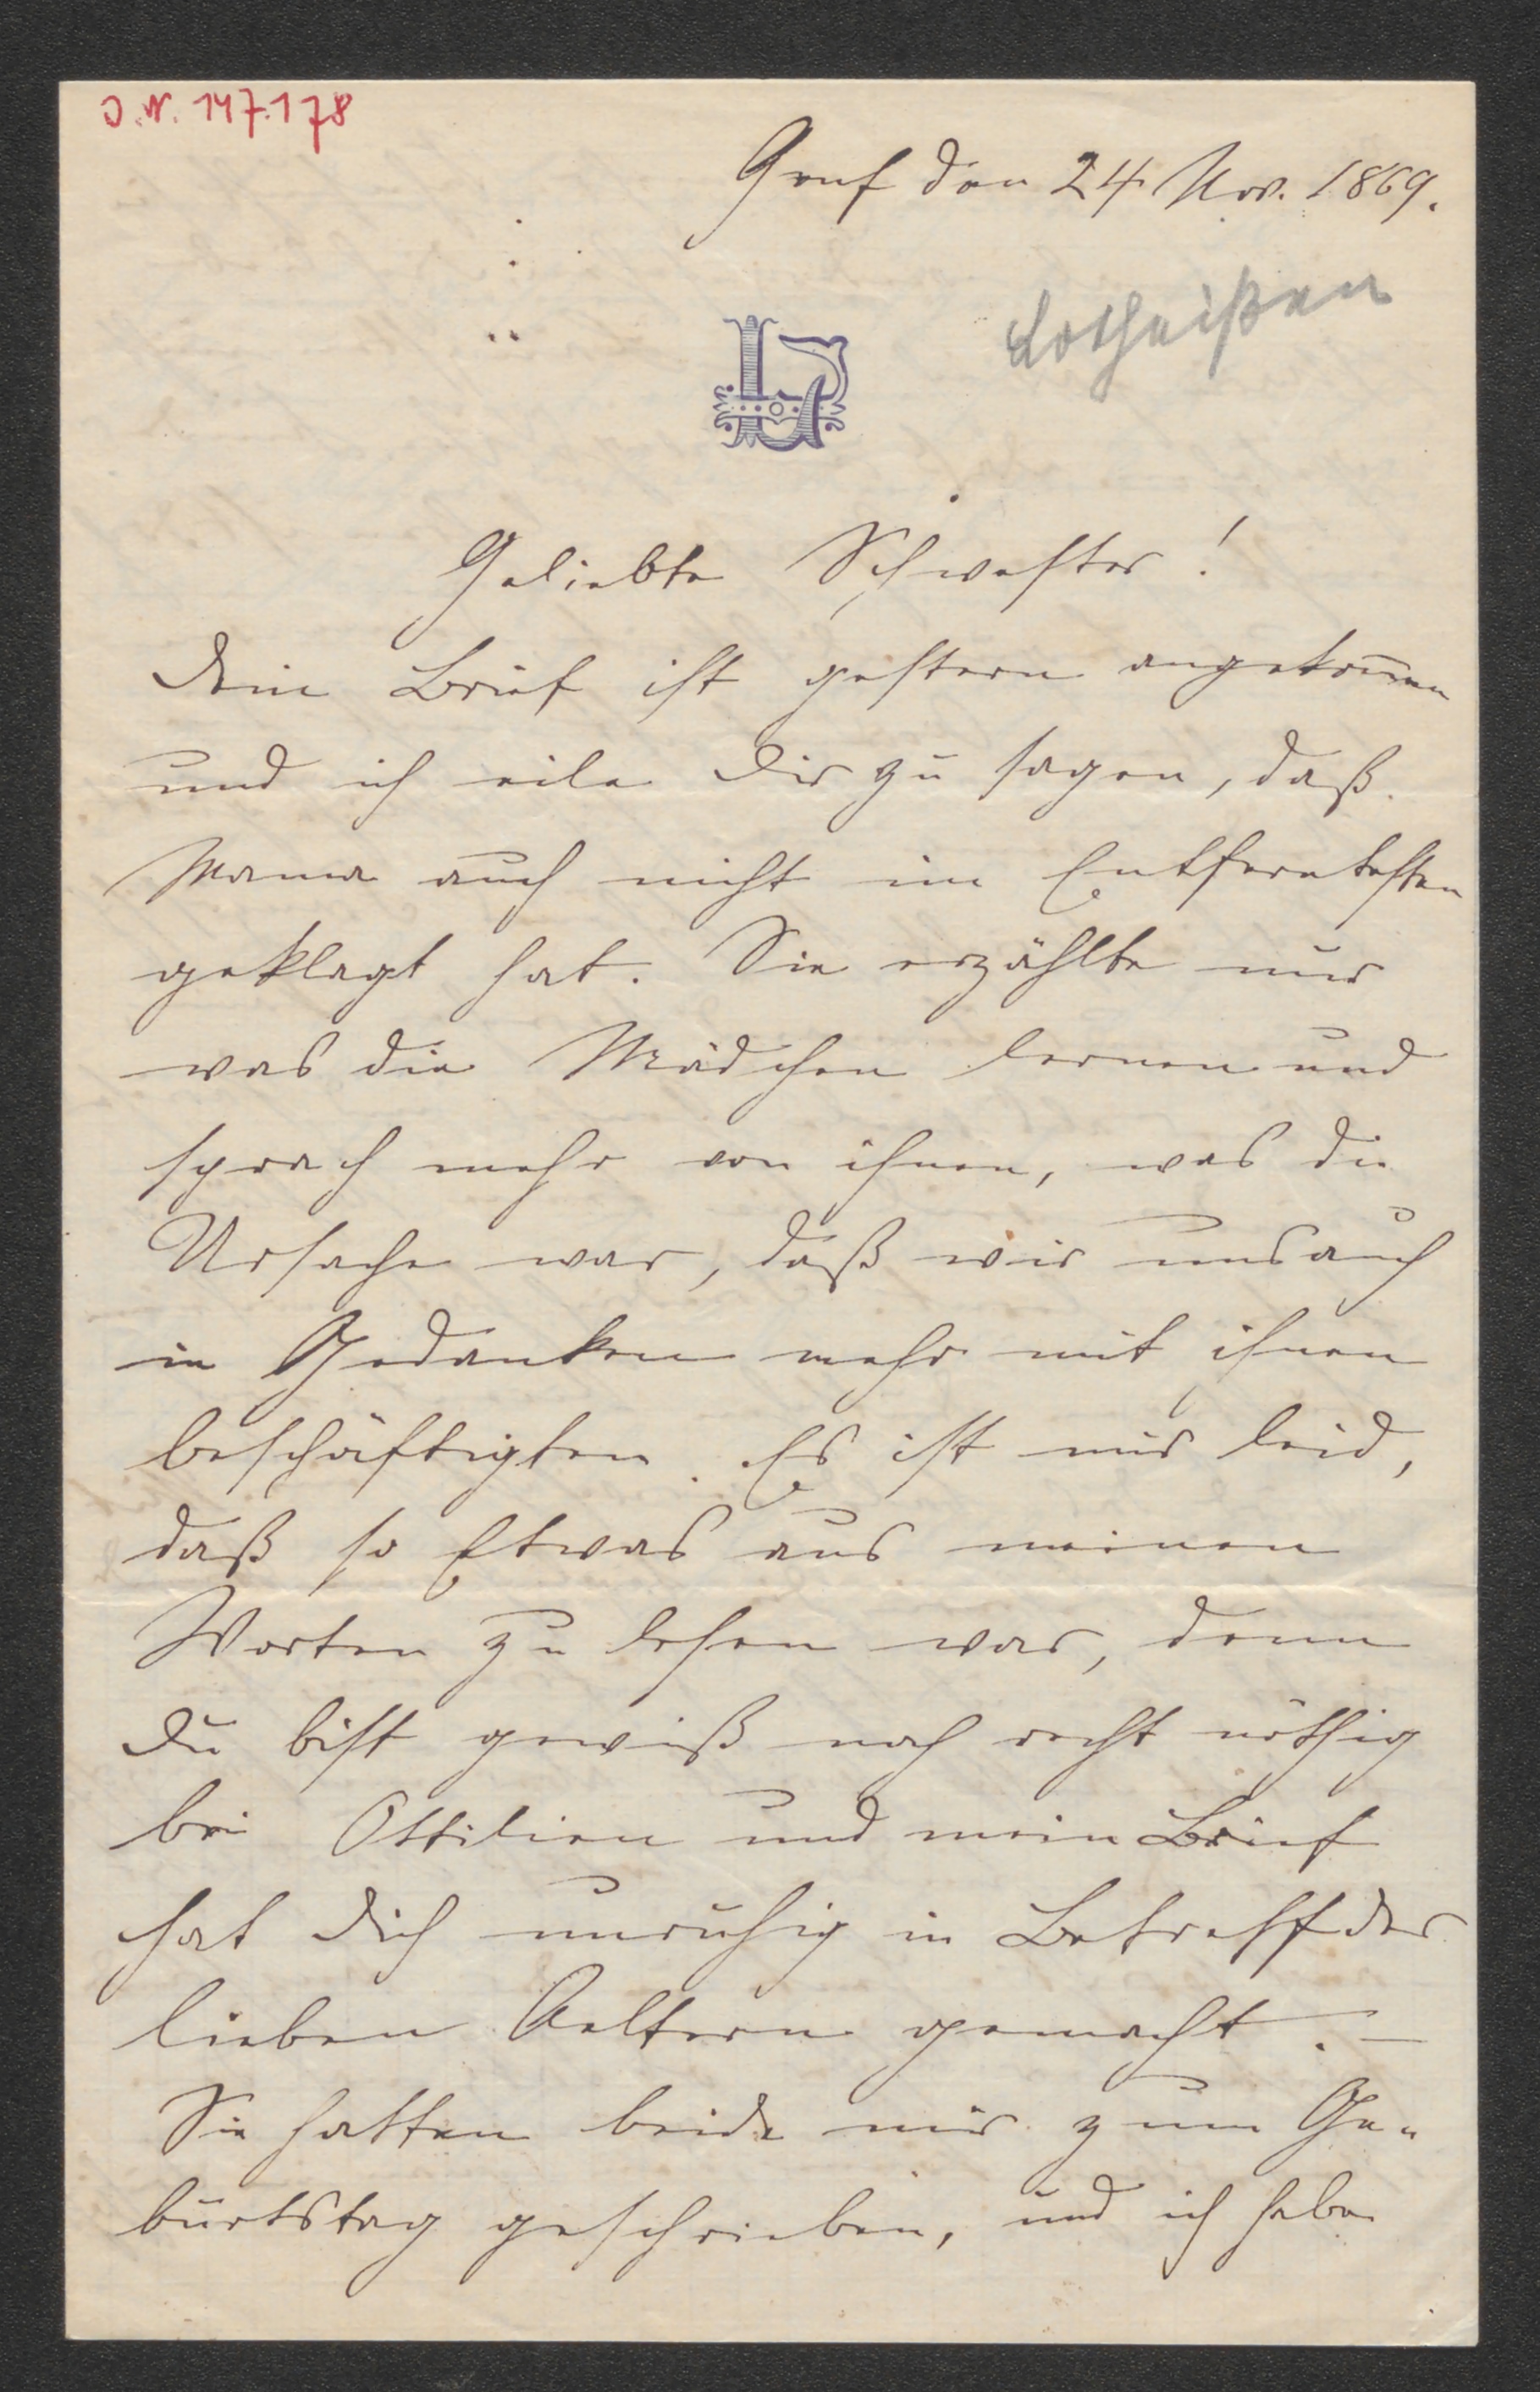 J. N. 147.178
Genf den 24. Nov. 1869.
Lotheißen
L
Geliebte Schwester!
Dein Brief ist gestern angekom̅en
und ich eile Dir zu sagen, daß
Mama auch nicht im Entferntesten
geklagt hat. Sie erzählte nur
was die Mädchen lernen und
sprach mehr von ihnen, was die
Ursache war, daß wir uns auch
in Gedanken mehr mit ihnen
beschäftigten. Es ist mir leid,
daß so Etwas aus meinen
Worten zu lesen war, denn
Du bist gewiß noch recht nöthig
bei Ottilien und mein Brief
hat Dich unruhig in Betreff der
lieben Aeltern gemacht. –
Sie hatten beide mir zum Ge-
burtstag geschrieben, und ich habe